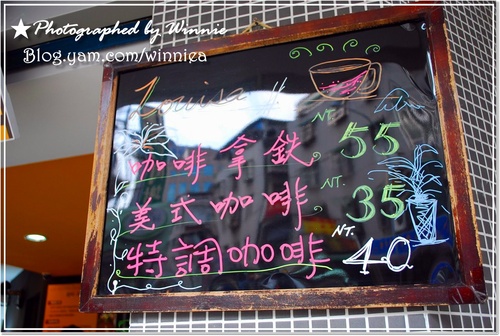 ★ Photographed by Winnie
Blog.yam.com/winniea
Louisa
咖啡拿鐵 NT. 55
美式咖啡 NT. 35
特調咖啡 NT. 40